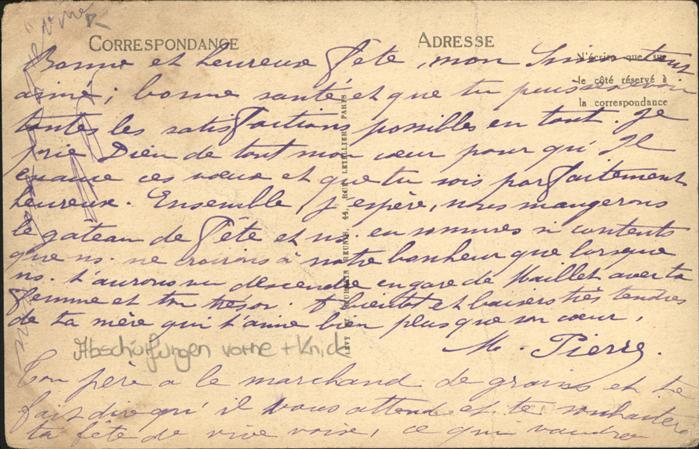 CORRESPONDANCE
ADRESSE
N'écrire que sur
le côté réservé à
la correspondance
Bonne et heureuse fête, mon
aimé; bonne santé et que tu puisses avoir
toutes les satisfactions possibles en tout. Je
prie Dieu de tout mon cœur pour qu'Il
exauce ces vœux et que tu sois parfaitement
heureux. Ensemble, j'espère, nous mangerons
le gâteau de fête et ns. en sommes si contents
que ns. ne croirons à notre bonheur que lorsque
ns. t'aurons vu descendre en gare de Maillet avec ta
femme et ton trésor. A bientôt et baisers très tendres
de ta mère qui t'aime bien plus que son cœur.
M. Pierre.
Abschürfungen vorne + Knick
Ton père a le marchand de grains et te
fait dire qu'il vous attend et te souhaitera
ta fête de vive voix, ce qui vaudra